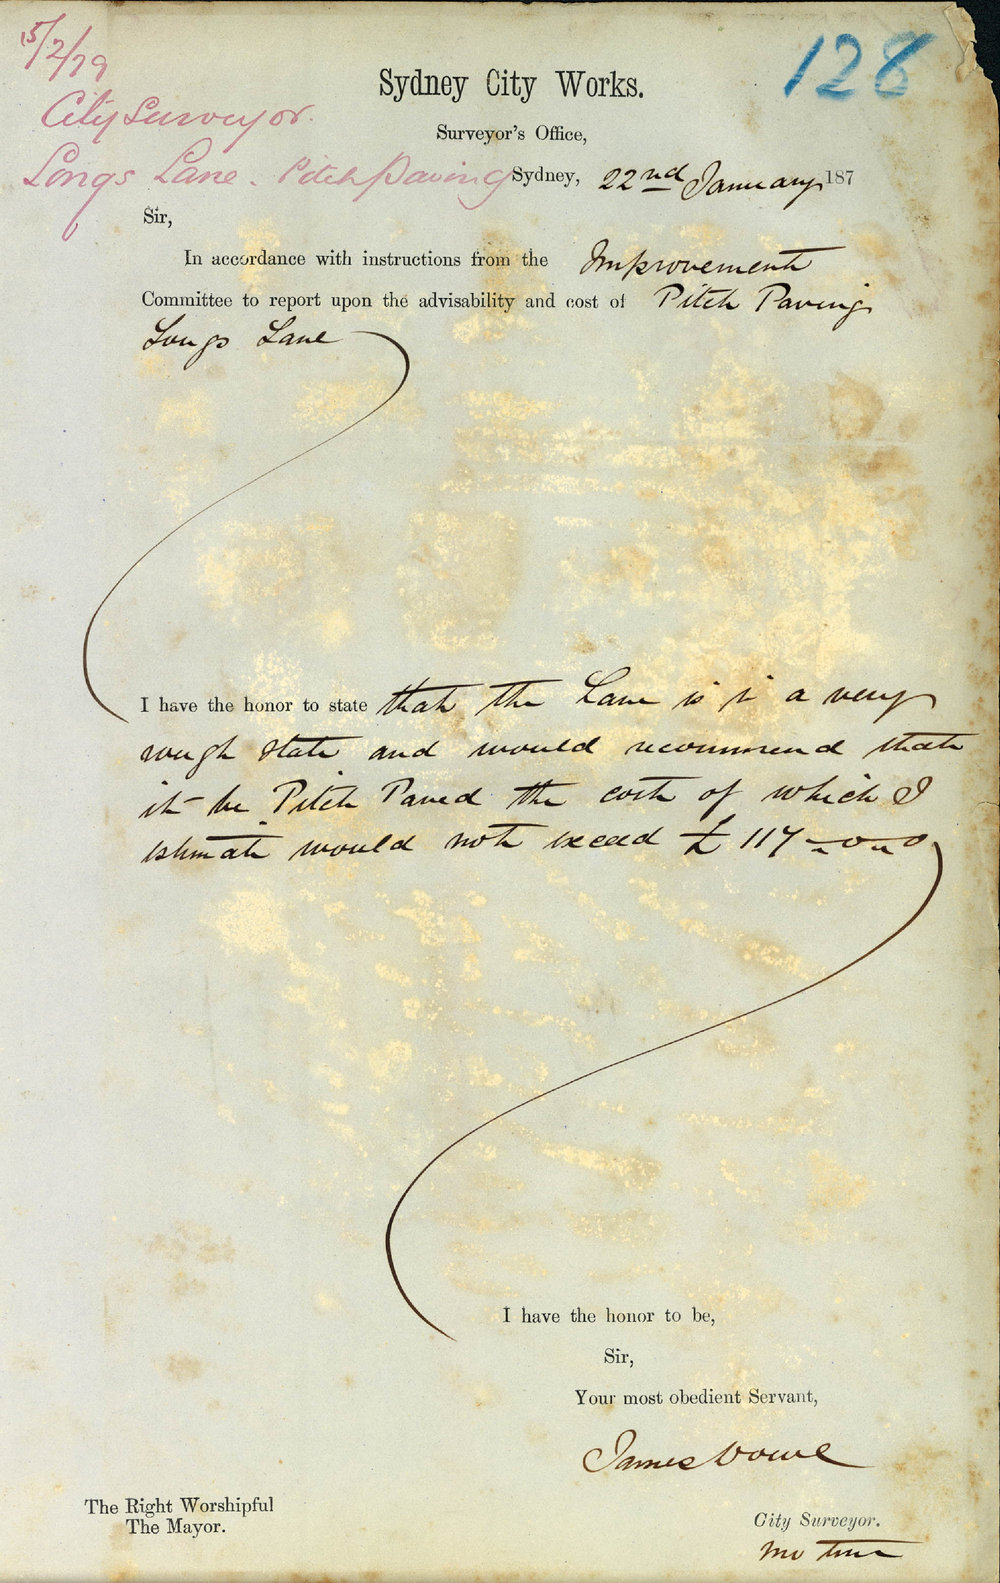 15/2/79
128
City Surveyor.
Longs Lane. Pitch Paving
Sydney City Works.
Surveyor's Office,
Sydney, 22nd January 187
Sir,
In accordance with instructions from the Improvement
Committee to report upon the advisability and cost of Pitch Paving
Longs Lane
I have the honor to state that the Lane is in a very
rough state and would recommend that
it be Pitch Paved the cost of which I
estimate would not exceed £117-0-0
I have the honor to be,
Sir,
Your most obedient Servant,
James
The Right Worshipful
The Mayor.
City Surveyor.